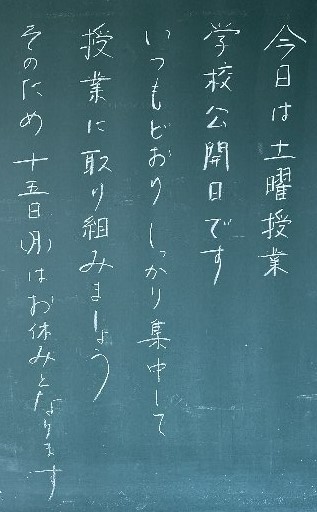 今日は土曜授業
学校公開日です
いつもどおりしっかり集中して
授業に取り組みましょう
そのため十五日(月)はお休みとなります